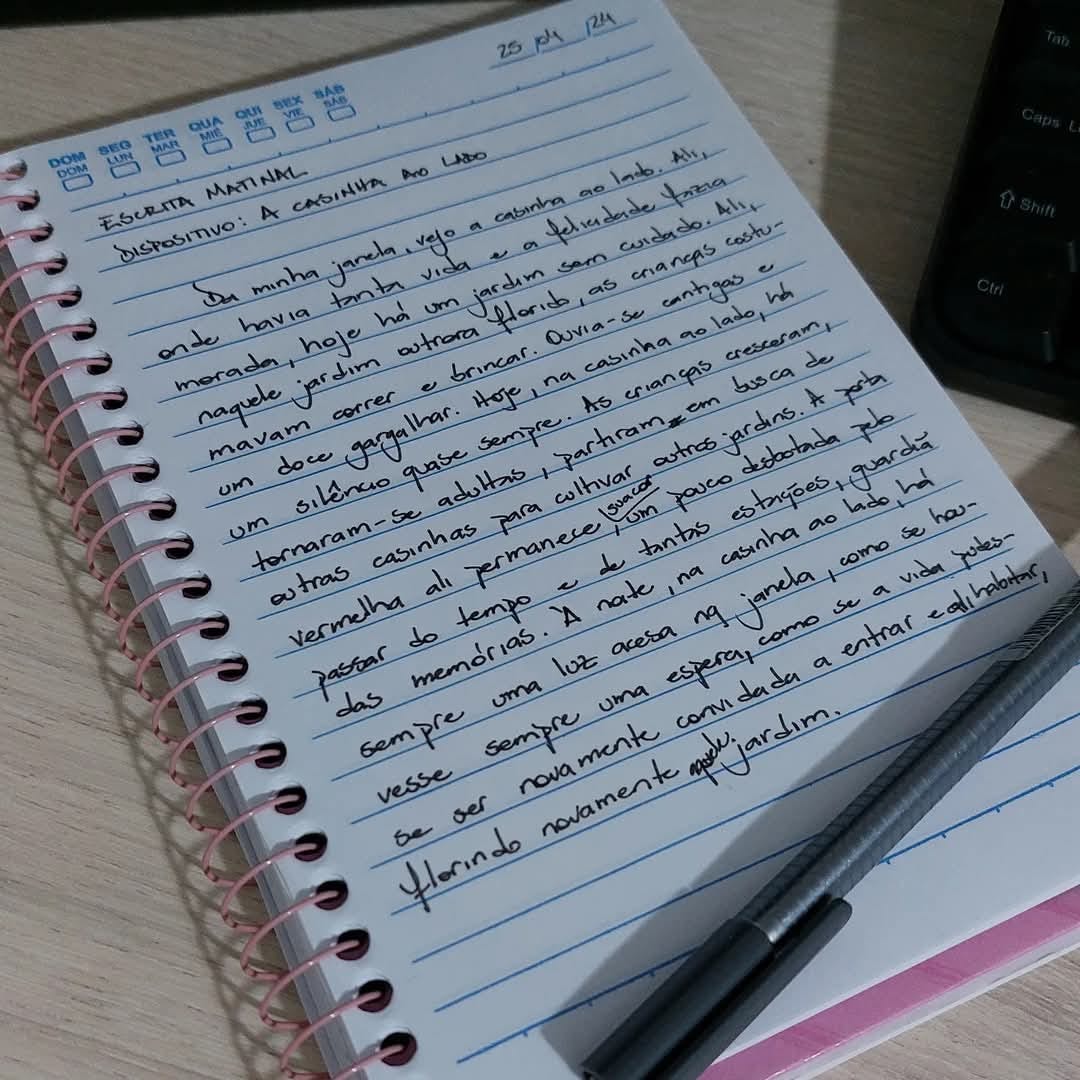 25/04/24
DOM SEG TER QUA QUI SEX SÁB
DOM LUN MAR MIÉ JUE VIE SÁB
ESCRITA MATINAL
DISPOSITIVO: A CASINHA AO LADO
Da minha janela, vejo a casinha ao lado. Ali,
onde havia tanta vida e a felicidade fazia
morada, hoje há um jardim sem cuidado. Ali,
naquele jardim outrora florido, as crianças costu-
mavam correr e brincar. Ouvia-se cantigas e
um doce gargalhar. Hoje, na casinha ao lado, há
um silêncio quase sempre. As crianças cresceram,
tornaram-se adultas, partiram em busca de
outras casinhas para cultivar outros jardins. A porta
vermelha ali permanece, sua cor um pouco desbotada pelo
passar do tempo e de tantas estações, guardiã
das memórias. À noite, na casinha ao lado, há
sempre uma luz acesa na janela, como se hou-
vesse sempre uma espera, como se a vida pudes-
se ser novamente convidada a entrar e ali habitar,
florindo novamente aquele jardim.
Tab
Caps L
Shift
Ctrl